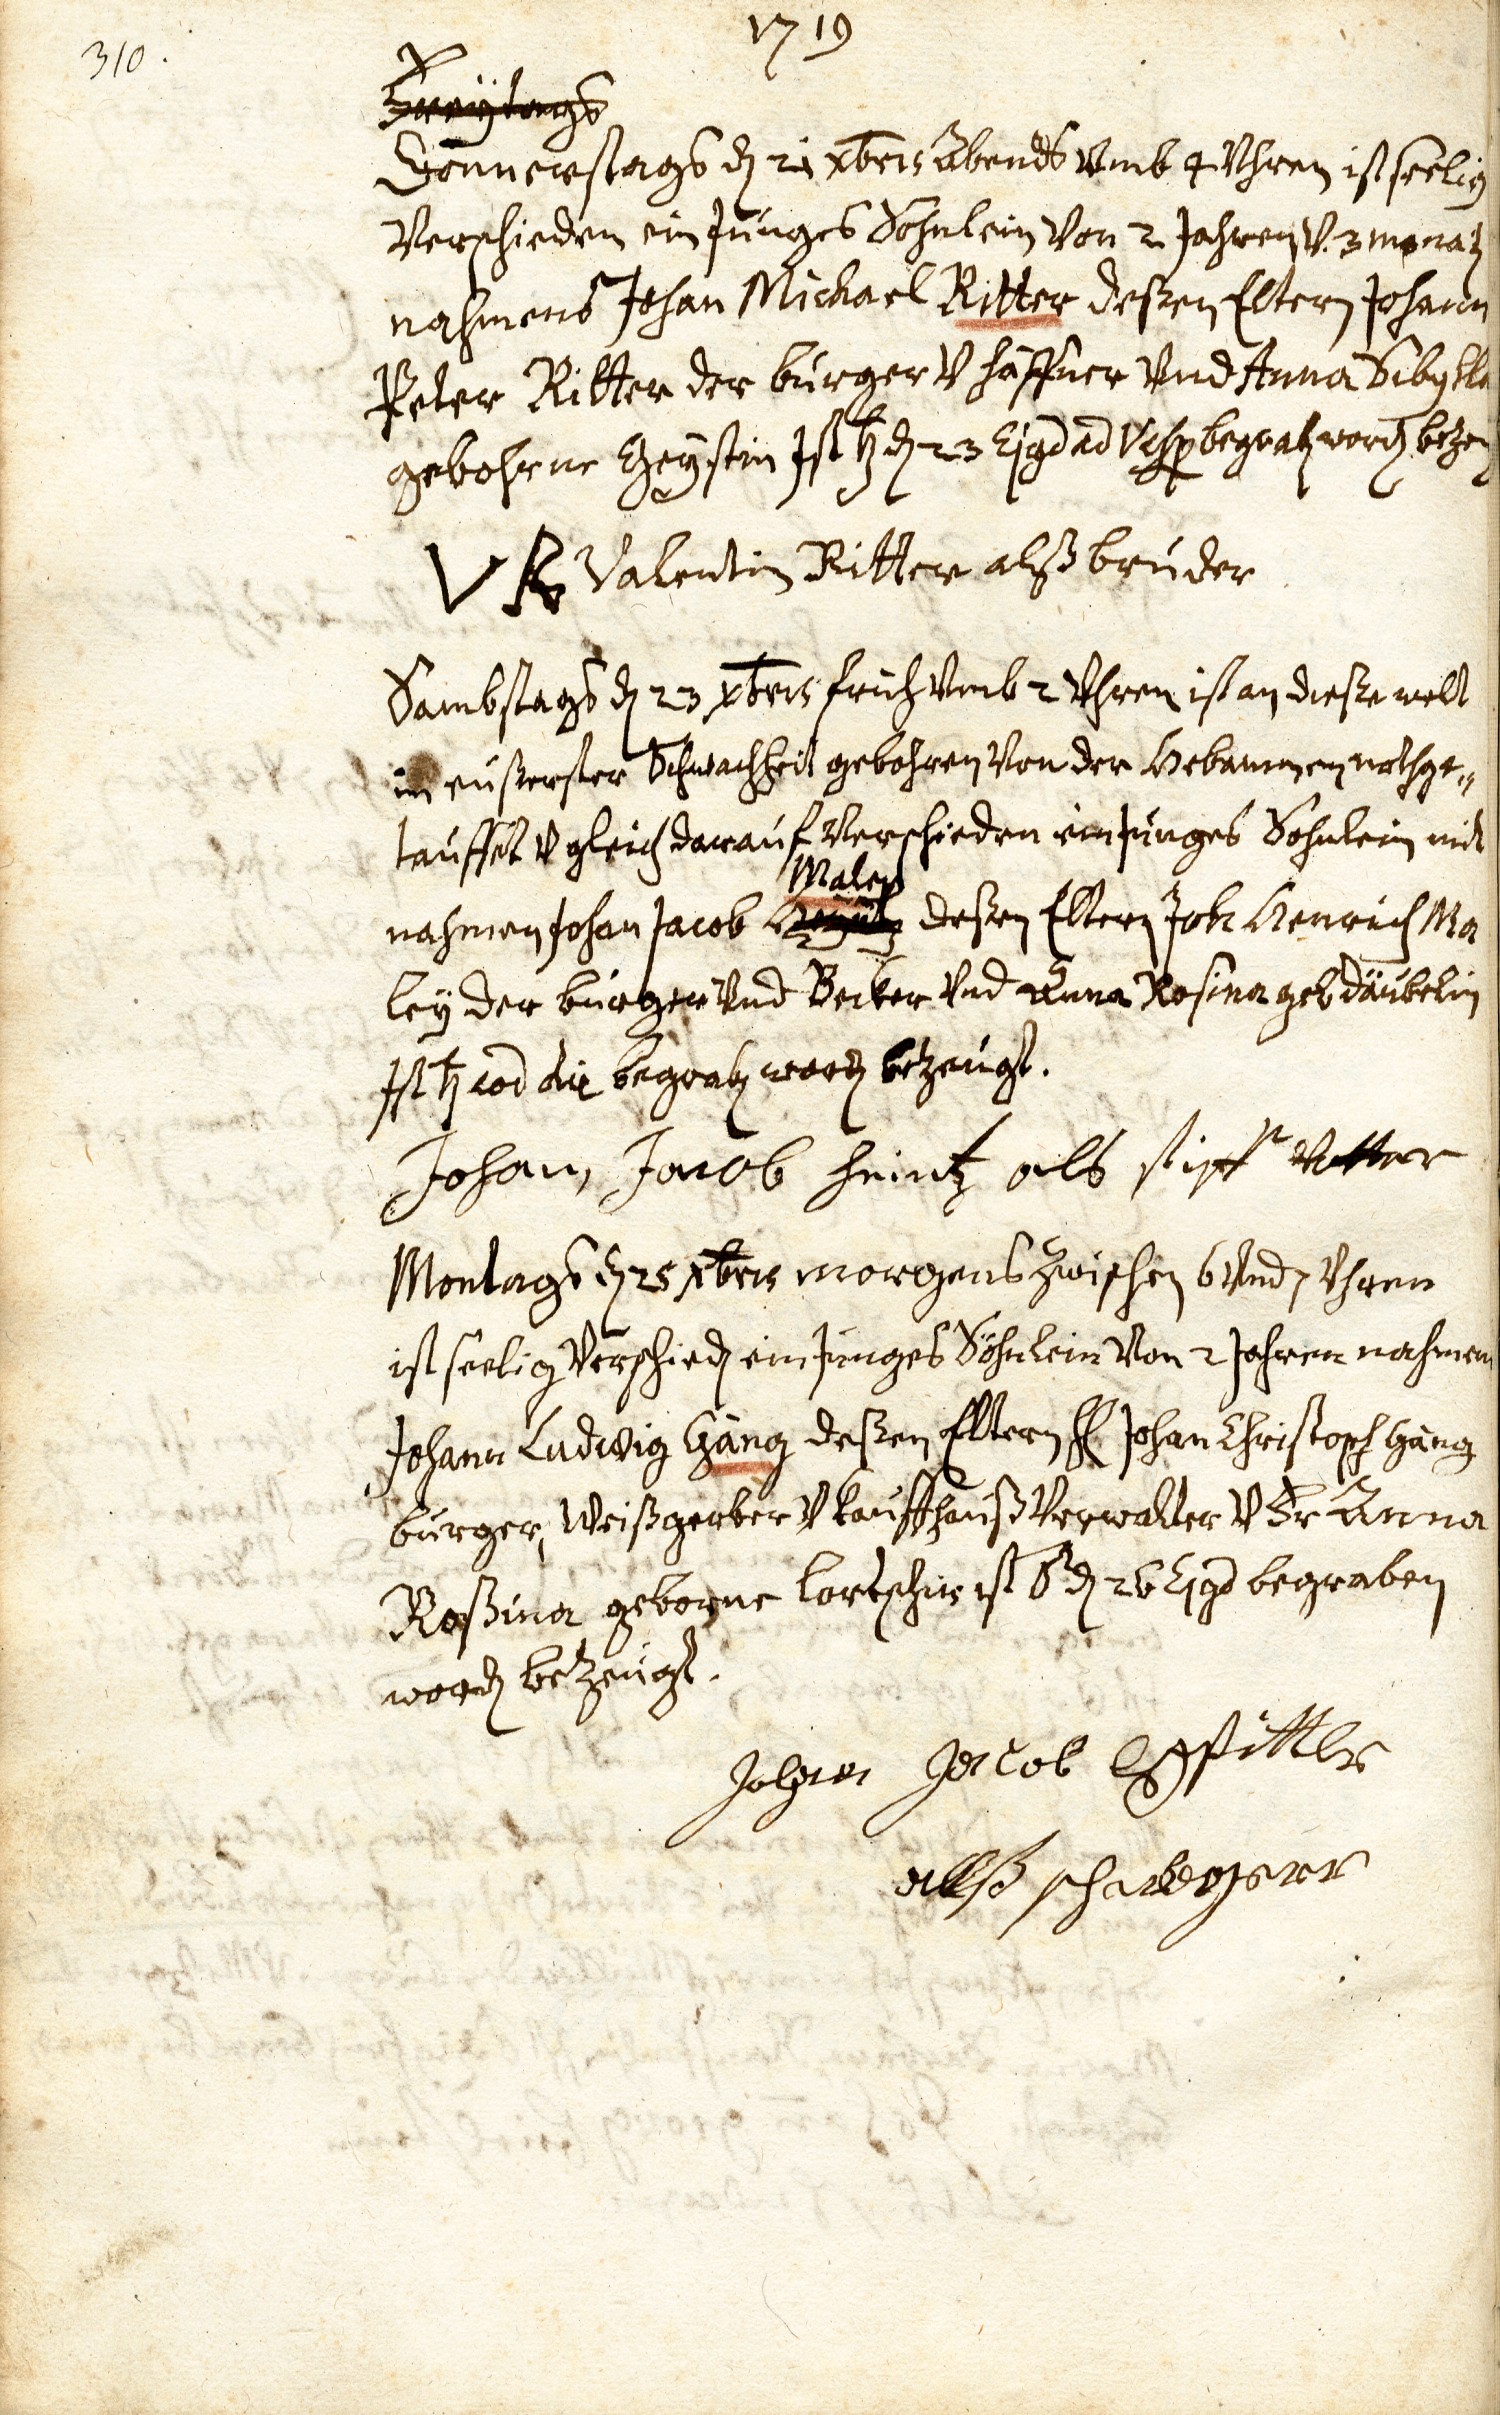 310.
1719
Freÿtags
Donnerstags dn 21 Xbris Abends vmb 4 Vhren ist seelig
Verschieden ein Junges Sohnlein Von 2 Jahren V. 3 monatn
nahmens Johan Michael Ritter deßen Eltern Johann
Peter Ritter der burger V haffner Vnd Anna Sibylla
gebohrne Geystin Ist ♄ dn 23 Ejsd ad Vesp begrabn wordn bezeu
V R Valentin Ritter alß bruder
Sambstags dn 23 Xbris früh Vmb 2 Vhren ist an dieße welt
in eußerster Schwachheit gebohren Von der Hebammen nothge„
taufft V gleich darauf Verschieden ein Junges Sohnlein mit
Maley
nahmen Johan Jacob deßen Eltern Joh Henrich Ma
leÿ der burger Vnd Becker Vnd Anna Rosina geb däubelin
Ist ♄ eod die begrabn wordn bezeugt.
Johan Jacob heintz als stieff Vatter
Montags dn 25 Xbris morgens Zwischen 6 Vnd 7 Vhren
ist seelig Verschiedn ein Junges Söhnlein Von 2 Jahren nahmens
Johann Ludwig Gäng deßen Eltern H Johan Christoph Gäng
burger, Weißgerber V kauffhauß Verwalter V Fr Anna
Roßina geborne ist dn 26 Ejsd begraben
wordn bezeugt.
Johan Jacob
alß schwager